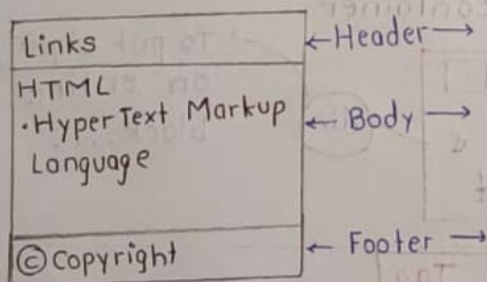 Links ←Header→
HTML
• HyperText Markup ← Body →
Language
© Copyright ← Footer →